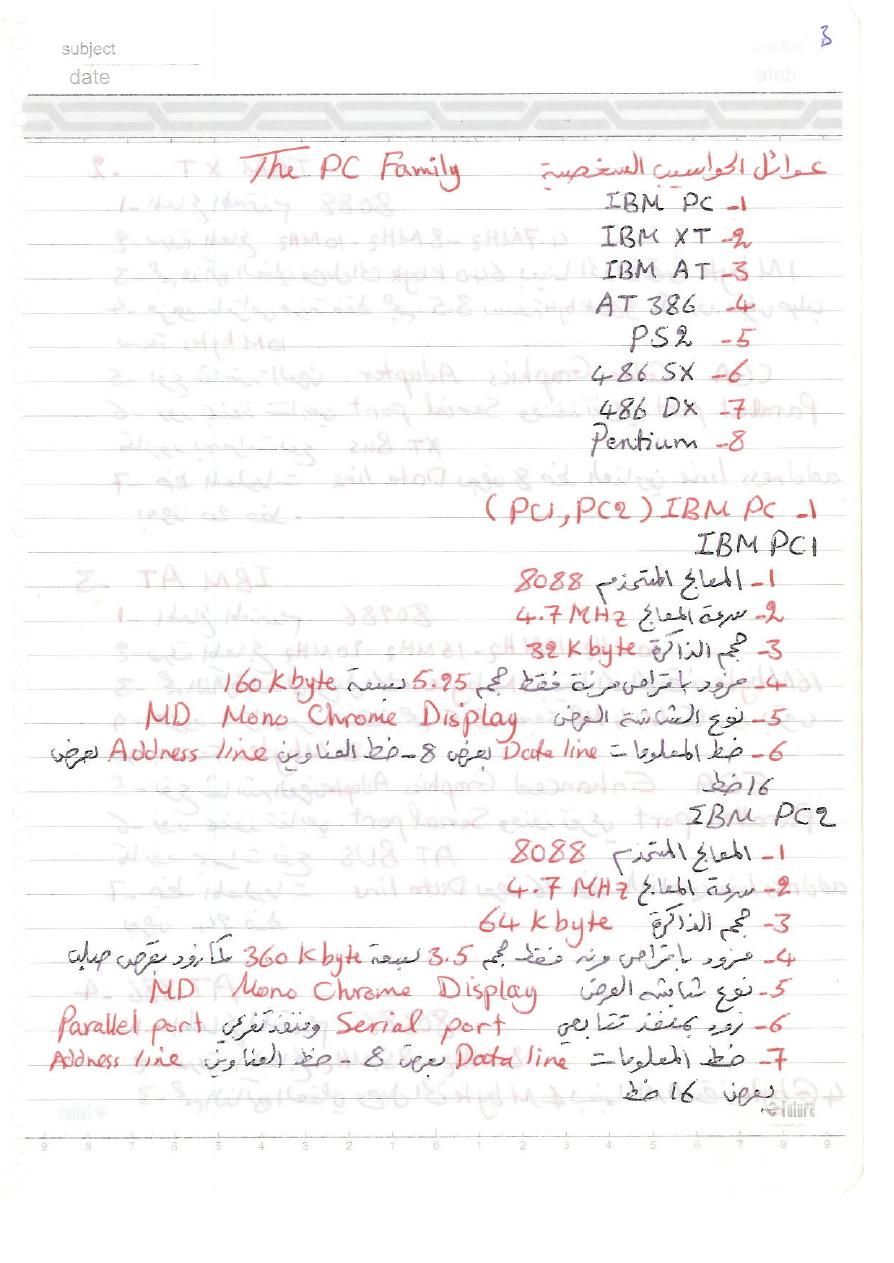 subject
date
3
عوائل الحواسيب الشخصية The PC Family
1- IBM PC
2- IBM XT
3- IBM AT
4- AT 386
5- PS2
6- 486 SX
7- 486 DX
8- Pentium
1- IBM PC (PC1, PC2)
IBM PC1
1- المعالج المستخدم 8088
2- سرعة المعالج 4.7 MHz
3- حجم الذاكرة 32 K byte
4- مزود باقراص مرنة فقط حجم 5.25 لسعة 160 K byte
5- نوع الشاشة العرض MD Mono Chrome Display
6- خط المعلومات Data line بعرض 8 - خط العناوين Address line بعرض
16 خط
IBM PC2
1- المعالج المستخدم 8088
2- سرعة المعالج 4.7 MHz
3- حجم الذاكرة 64 K byte
4- مزود باقراص مرنه فقط حجم 3.5 لسعة 360 K byte كما زود بقرص صلب
5- نوع شاشه العرض MD Mono Chrome Display
6- زود بمنفذ تتابعي Serial port ومنفذ تفرعي Parallel port
7- خط المعلومات Data line بعرض 8 - خط العناوين Address line
بعرض 16 خط
Future
9 8 7 6 5 4 3 2 1 0 1 2 3 4 5 6 7 8 9